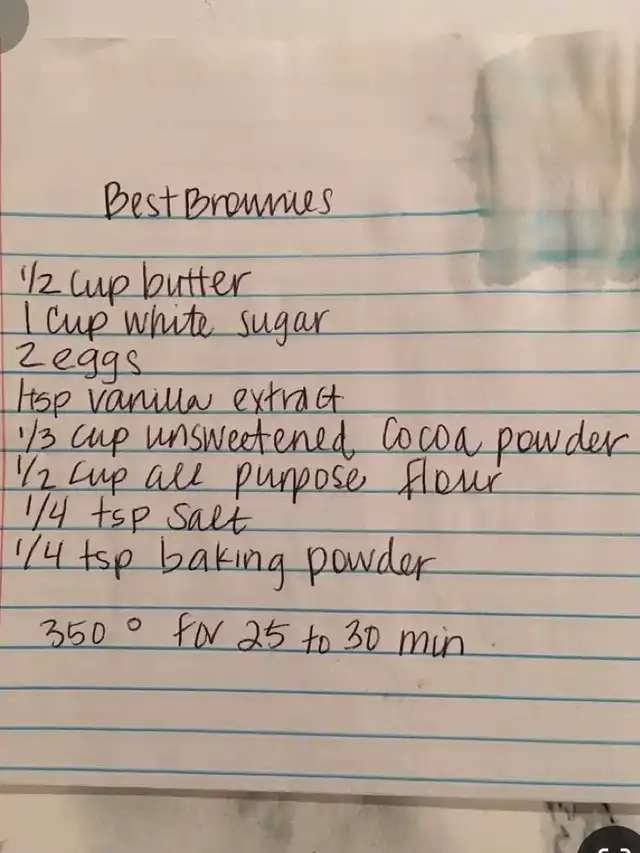 Best Brownies
1/2 cup butter
1 cup white sugar
2 eggs
1 tsp vanilla extract
1/3 cup unsweetened cocoa powder
1/2 cup all purpose flour
1/4 tsp salt
1/4 tsp baking powder
350° for 25 to 30 min